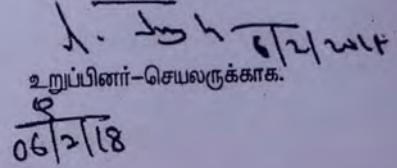 6/2/2018
உறுப்பினர்-செயலருக்காக.
06/2/18